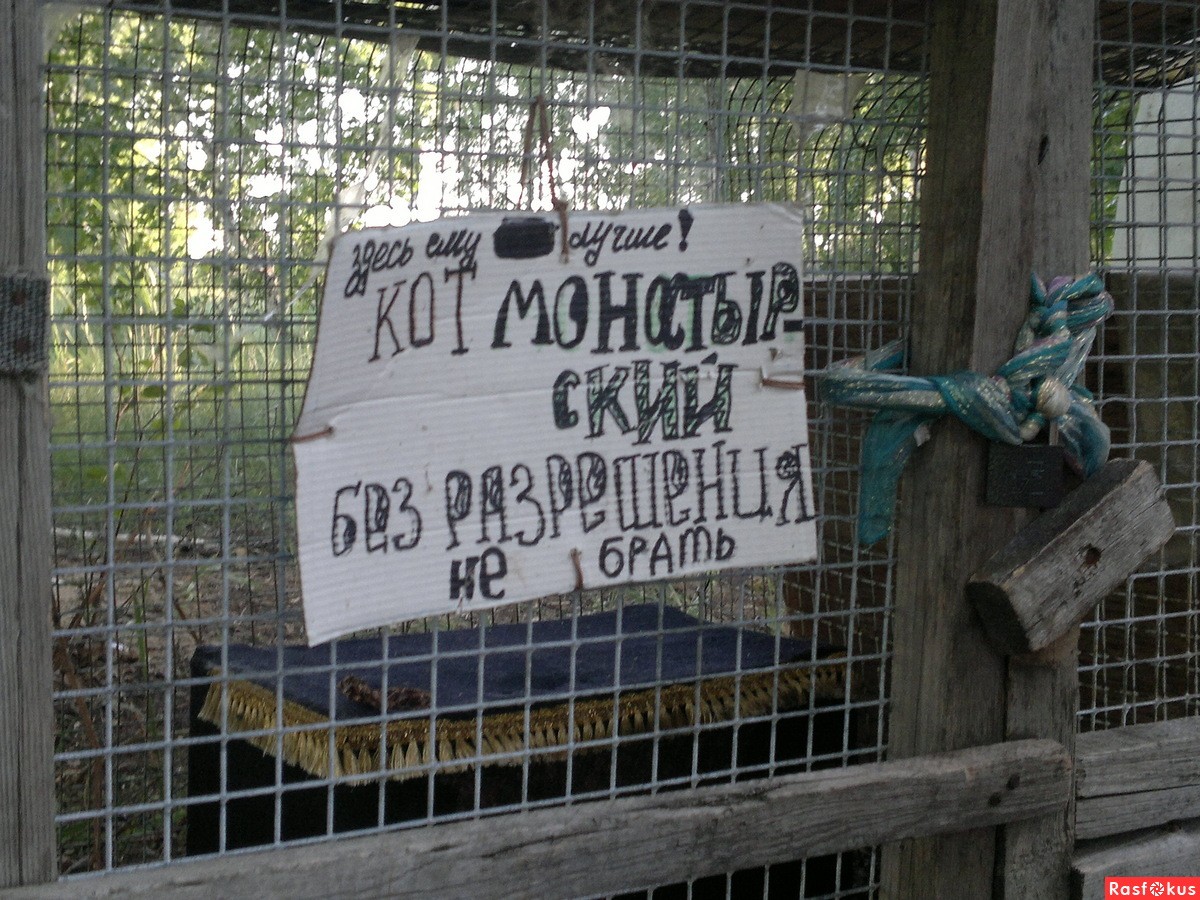 здесь ему лучше!
КОТ МОНАСТЫР-
СКИЙ
БЕЗ РАЗРЕШЕНИЯ
не БРАТЬ
Rasfokus